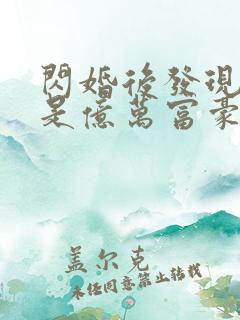 閃婚後發現
是億萬富豪
盖尔克
未经同意禁止转载